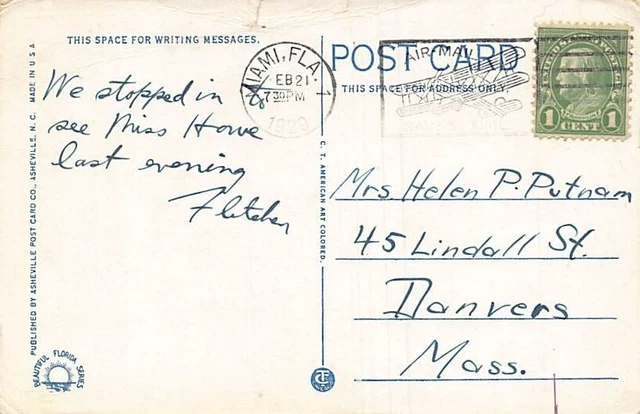 THIS SPACE FOR WRITING MESSAGES.
We stopped in to
see Miss Howe
last evening
Fletcher
MIAMI, FLA. 1
FEB 21
7 30 PM
1929
POST CARD
THIS SPACE FOR ADDRESS ONLY.
AIR MAIL
1 CENT 1
Mrs Helen P. Putnam
45 Lindall St.
Danvers
Mass.
PUBLISHED BY ASHEVILLE POST CARD CO., ASHEVILLE, N. C. MADE IN U S A
C. T. AMERICAN ART COLORED.
BEAUTIFUL FLORIDA SERIES